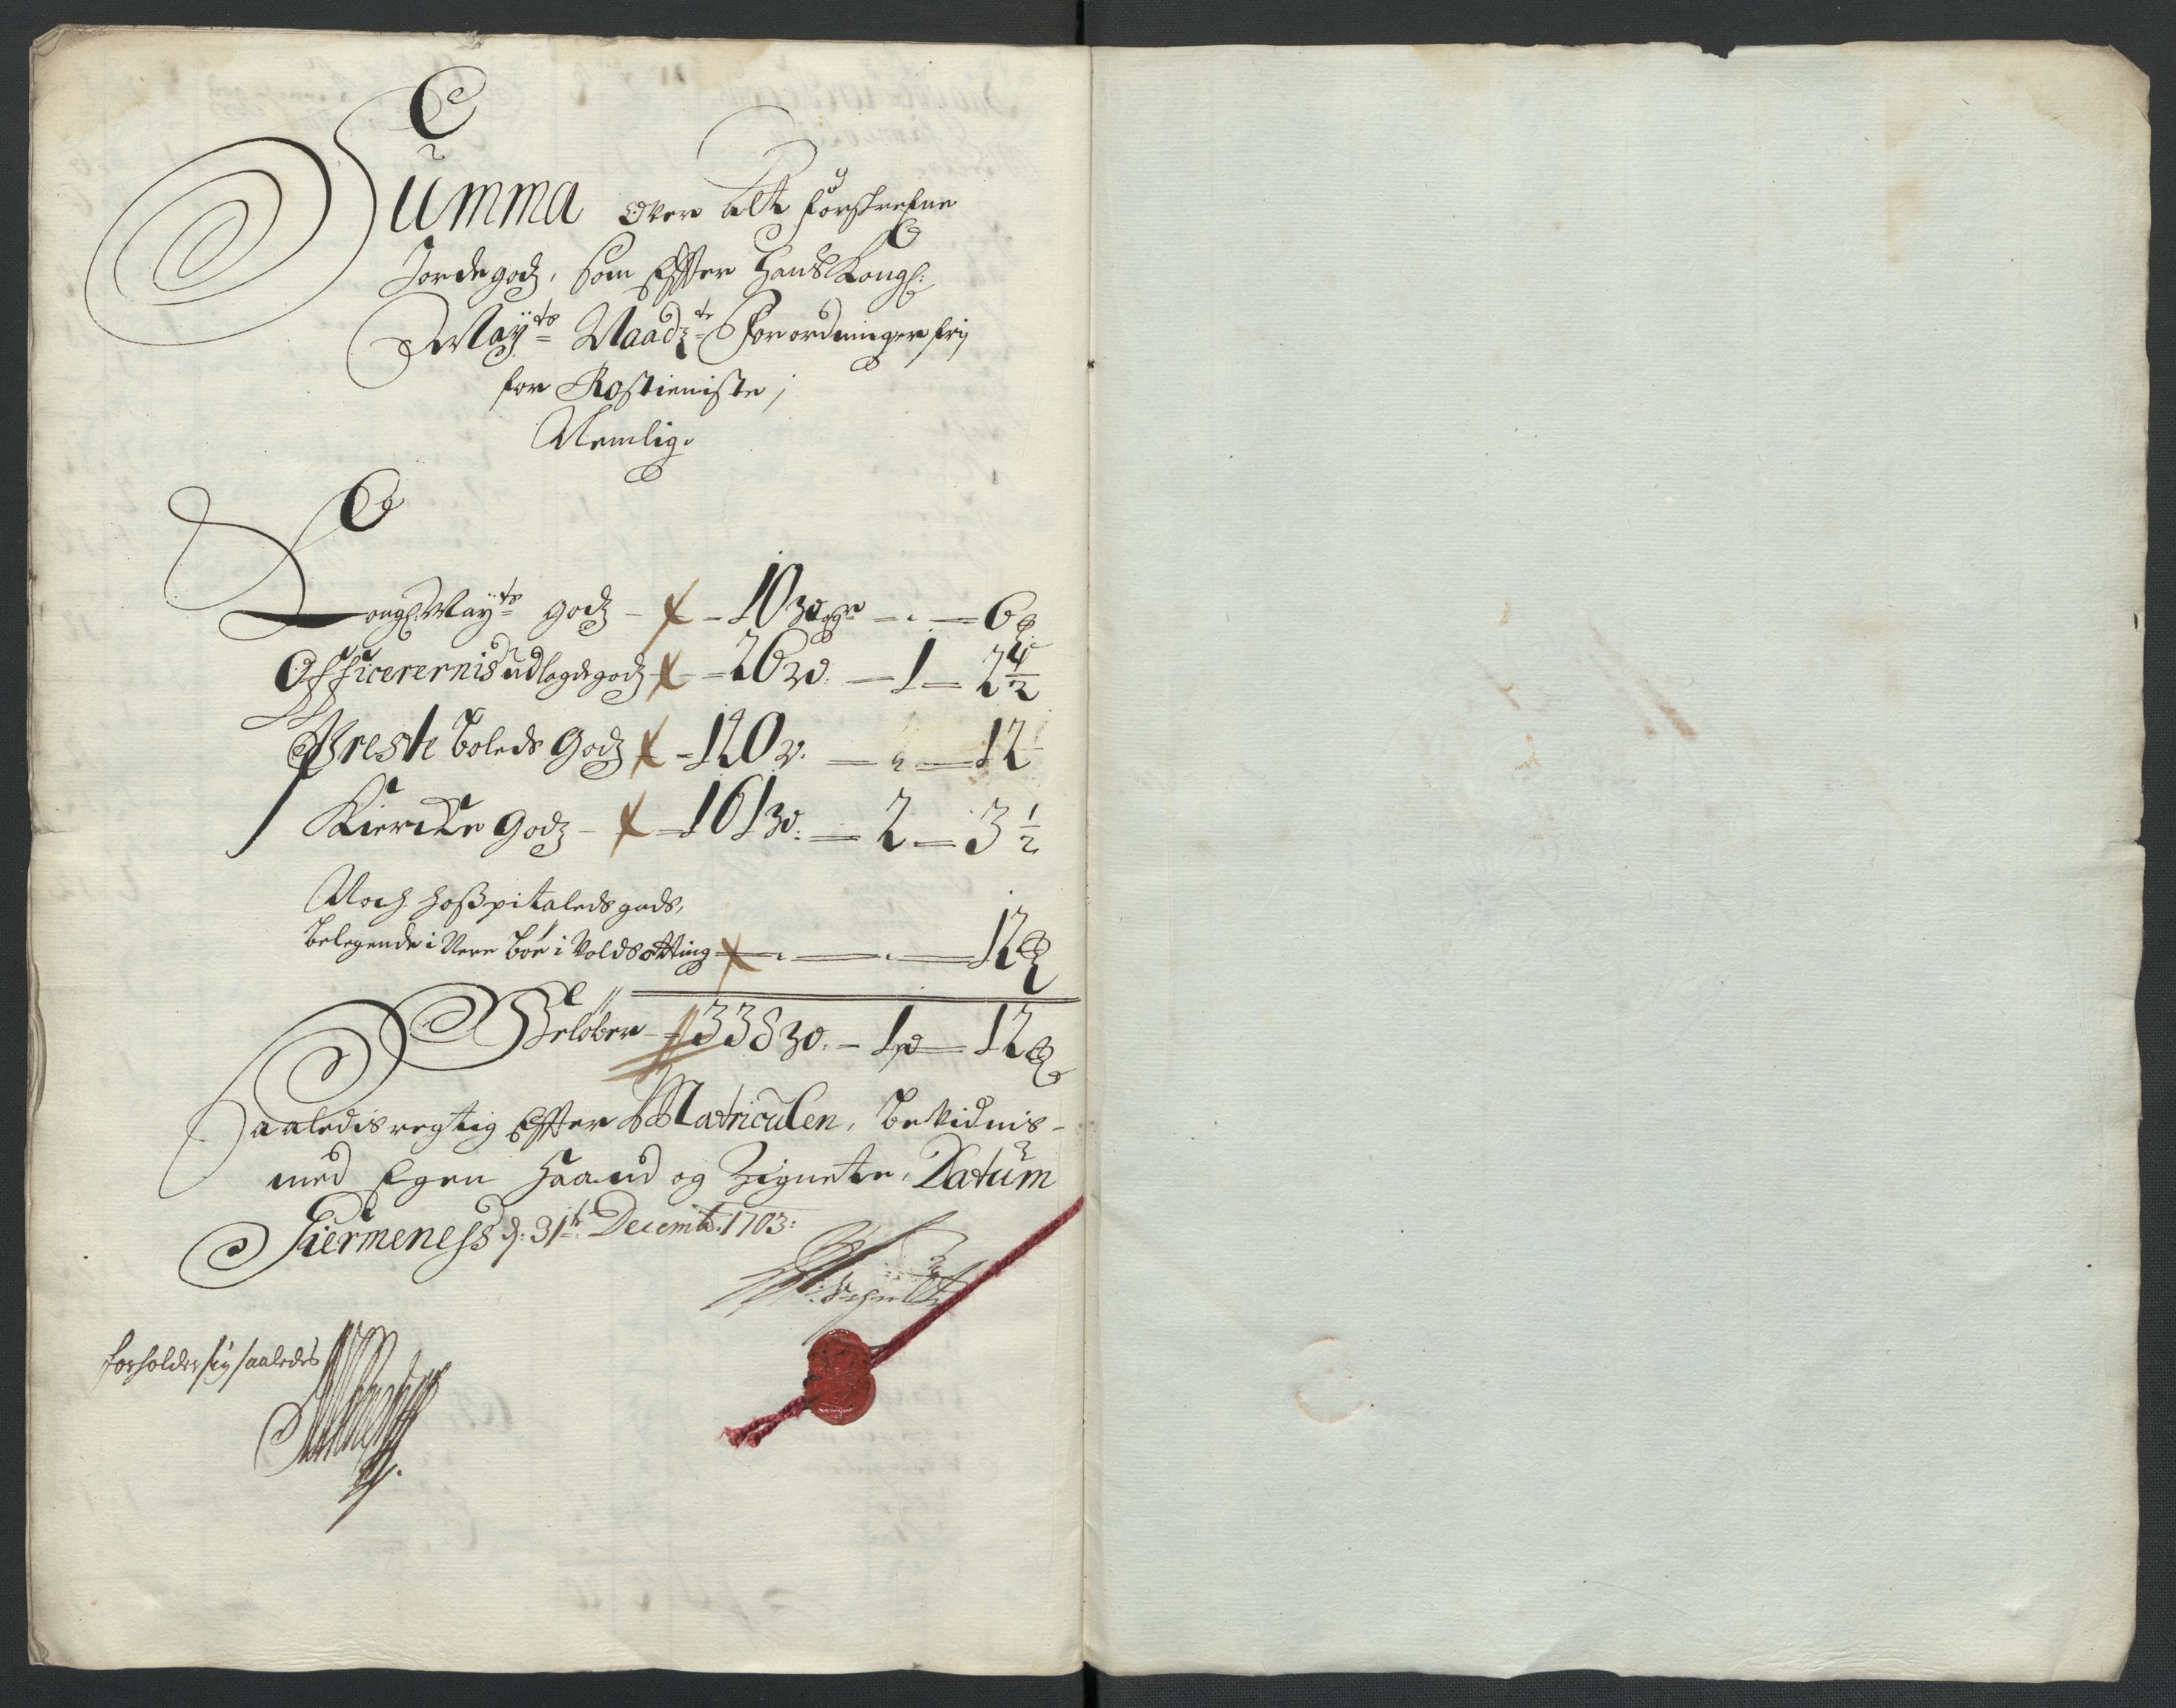 Summa over alt forschrefne
Jordegodz, som Effter Hans Kongl:
Mayts Naadzte Forordninger frj
for Rostieniste,
Nemlig.
Kongl: Mayts godz - 10 - 6
Officerernis udlagde godz - 26 - 1 - 2 1/2
Preste boleds Godz - 140 - 12
Kiercke Godz - 161 - 2 - 3 1/2
Noch Hospitaleds gods,
belegende i Nere boe i Volds otting - 12
Beløber - 338 - 1 - 12
Saaledis regtig Effter Matriculen, bevidnis
med Egen Haand og Zignete, Datum
Giermeness d: 31te Decemb: 1703:
forholder sig saaledes